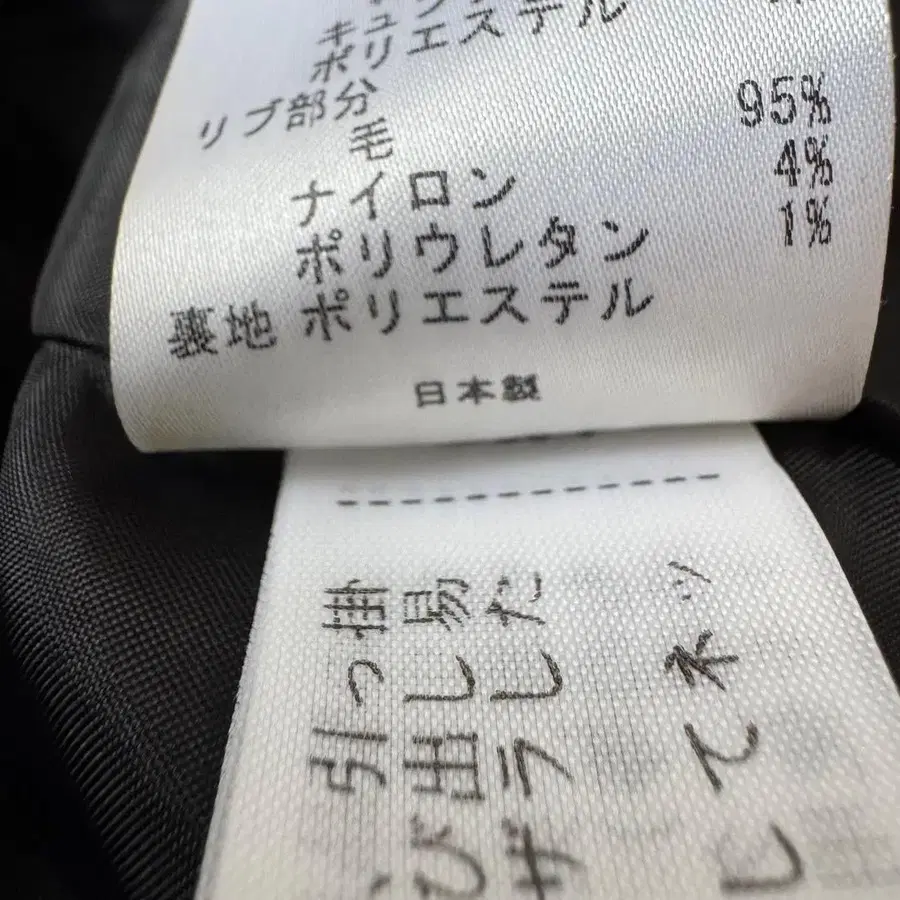 キュ
ポリエステル
リブ部分
毛 95%
ナイロン 4%
ポリウレタン 1%
裏地 ポリエステル
日本製
引っ掛
び出し易
ザラした
してネッ